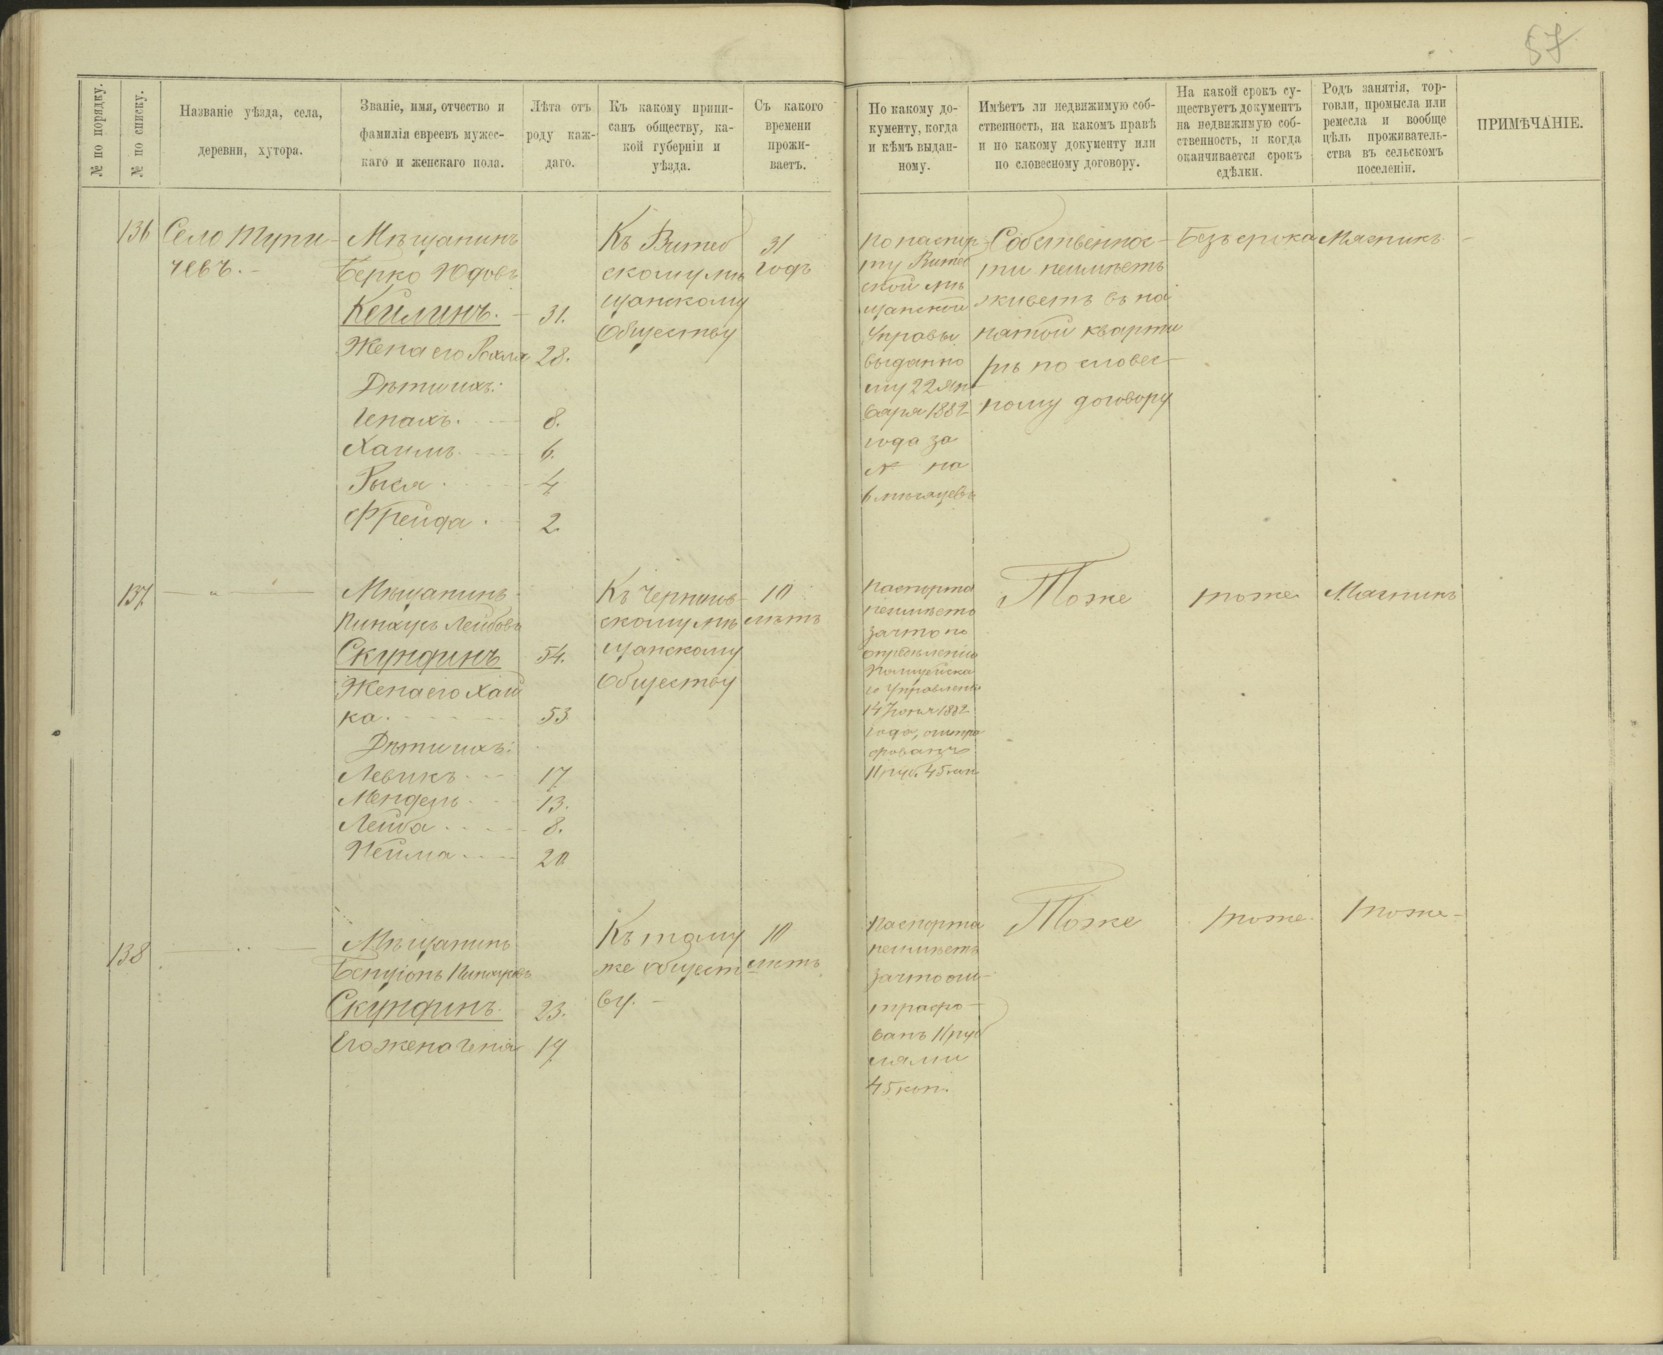 57
№ по порядку.
№ по списку.
Названіе уѣзда, села,
деревни, хутора.
Званіе, имя, отчество и
фамилія евреевъ мужес-
каго и женскаго пола.
Лѣта отъ
роду каж-
даго.
Къ какому припи-
санъ обществу, ка-
кой губерніи и
уѣзда.
Съ какого
времени
прожи-
ваетъ.
По какому до-
кументу, когда
и кѣмъ выдан-
ному.
Имѣетъ ли недвижимую соб-
ственность, на какомъ правѣ
и по какому документу или
по словесному договору.
На какой срокъ су-
ществуетъ документъ
на недвижимую соб-
ственность, и когда
оканчивается срокъ
сдѣлки.
Родъ занятія, тор-
говли, промысла или
ремесла и вообще
цѣль проживатель-
ства въ сельскомъ
поселеніи.
ПРИМѢЧАНІЕ.
136
Село Тупи-
чевъ. -
Мѣщанинъ
Берко Юдовъ
Кейлинъ. - 31.
Жена его Рохля 28.
Дѣти ихъ:
8.
Хаимъ 6.
Рыся 4
Фрейда 2
Къ Витеб
скому мѣ
щанскому
Обществу
31
годъ
По паспор-
ту Витеб
ской мѣ
щанской
Управы
выданно
му 22 Ян-
варя 1882
года за
№ на
6 мѣсяцевъ
Собственнос-
ти неимѣетъ
живетъ въ на
натой кварти
рѣ по словес-
ному договору
Безъ срока
Мясникъ -
137
Мѣщанинъ
Пинхусъ Лейбовъ
Скундинъ 54.
Жена его Хай
ка. 53
Дѣти ихъ:
Левикъ 17
Мендель 13.
Лейба 8.
Нейма 20
Къ Чернигов-
скому мѣ
щанскому
Обществу
10
лѣтъ
Паспорта
неимѣетъ
за что по
опредѣленію
Полицейска
го Управленія
14 Іюня 1882
года, оштра
фованъ
11 руб. 45 коп.
Тоже
тоже
Мясникъ
138
Мѣщанинъ
Бенціонъ Пинхусовъ
Скундинъ 23.
Его жена 19
Къ тому
же Общест
ву. -
10
лѣтъ
Паспорта
неимѣетъ
за что ош-
трафо-
ванъ 11 руб
лями
45 коп.
Тоже
тоже
тоже -